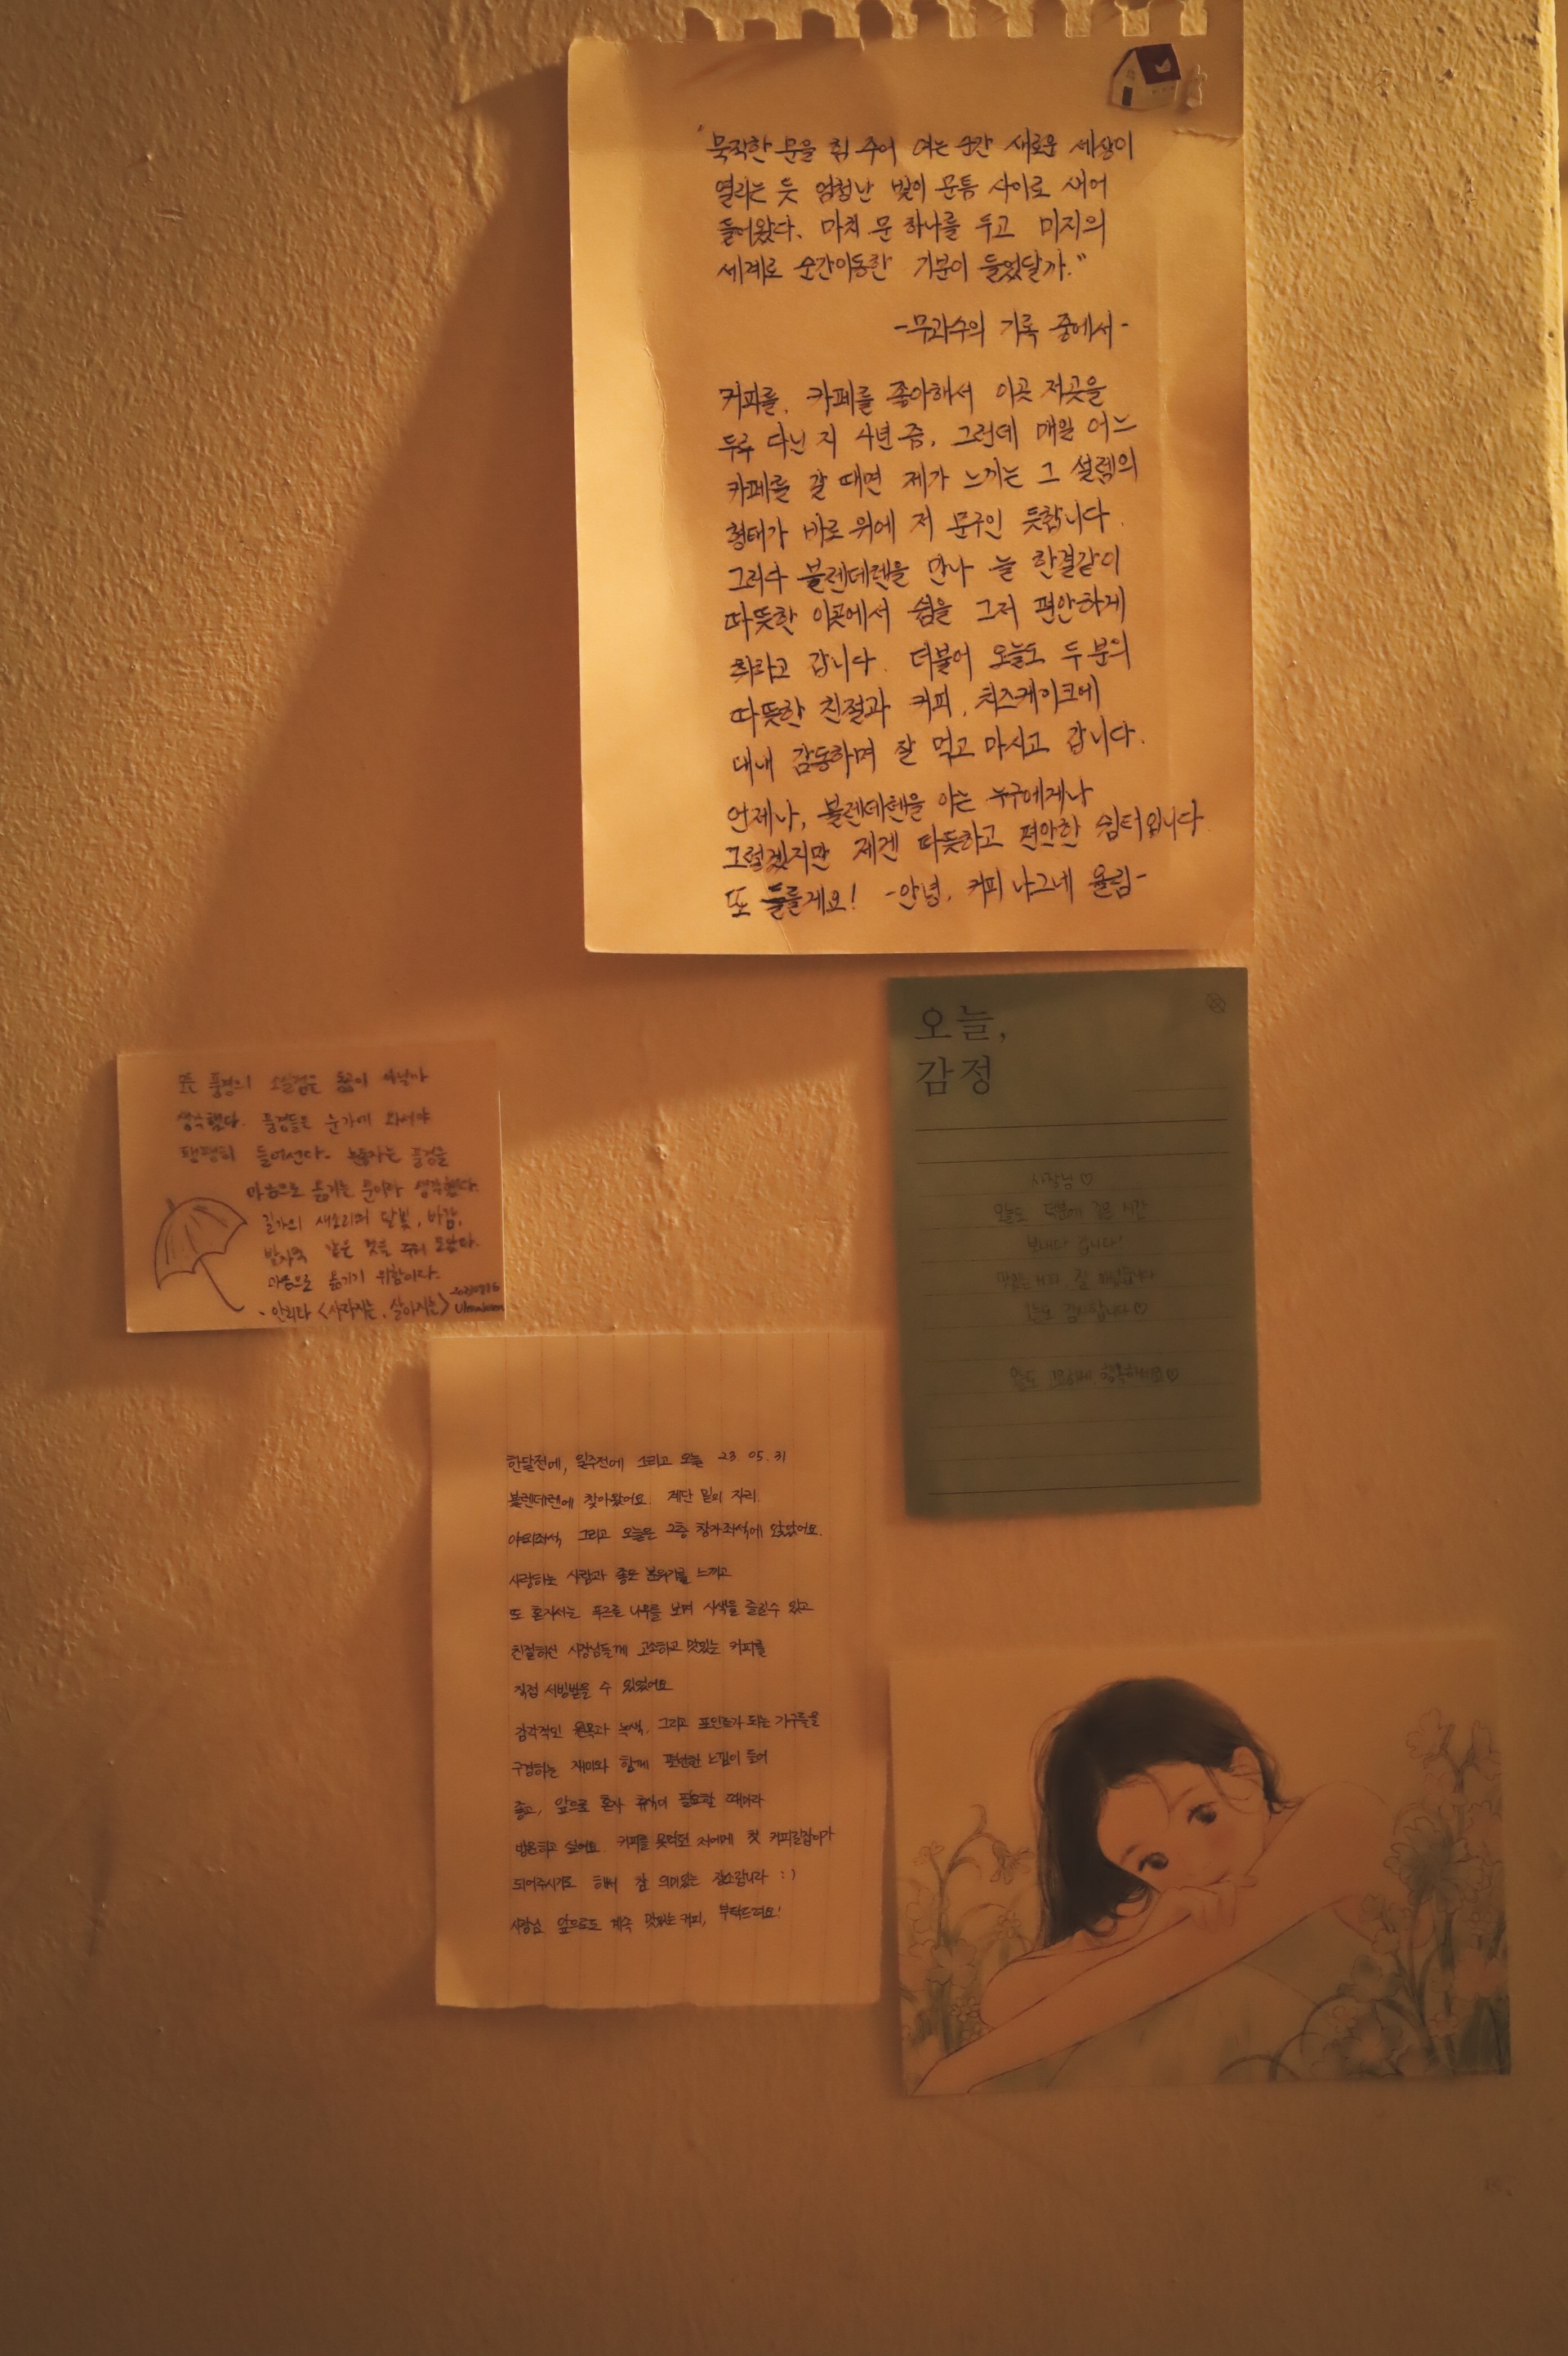 "묵직한 문을 힘 주어 여는 순간 새로운 세상이
열리는 듯 엄청난 빛이 문틈 사이로 새어
들어왔다. 마치 문 하나를 두고 미지의
세계로 순간이동한 기분이 들었달까."
-무과수의 기록 중에서-
커피를, 카페를 좋아해서 이곳 저곳을
두루 다닌 지 4년 쯤, 그런데 매일 어느
카페를 갈 때면 제가 느끼는 그 설렘의
형태가 바로 위에 저 문구인 듯합니다.
그러다 블렌데렌을 만나 늘 한결같이
따뜻한 이곳에서 쉼을 그저 편안하게
취하고 갑니다. 더불어 오늘도 두 분의
따뜻한 친절과 커피, 치즈케이크에
내내 감동하며 잘 먹고 마시고 갑니다.
언제나, 블렌데렌을 아는 누구에게나
그렇겠지만 제겐 따뜻하고 편안한 쉼터입니다
또 들를게요! -안녕, 커피 나그네 율림-
모든 풍경의 소실점은 눈이 아닐까
생각했다. 풍경들은 눈가에 와서야
팽팽히 들어선다. 눈동자는 풍경을
마음으로 옮기는 문이라 생각했다.
길가의 새소리와 달빛, 바람,
발자국 같은 것을 주워 모았다.
마음으로 옮기기 위함이다.
- 안리타 <사라지는, 살아지는>
오늘,
감정
사장님♡
오늘도 덕분에 좋은 시간
보내다 갑니다!
맛있는 커피 잘 마셨습니다
오늘도 감사합니다♡
행복하세요♡
한달전에, 일주전에 그리고 오늘 23. 05. 31
블렌데렌에 찾아왔어요. 계단 밑의 자리,
야외좌석, 그리고 오늘은 2층 창가좌석에 앉았어요.
사랑하는 사람과 좋은 분위기를 느끼고
또 혼자서는 푸르른 나무를 보며 사색을 즐길수 있고
친절하신 사장님들께 고소하고 맛있는 커피를
직접 서빙받을 수 있었어요
감각적인 원목과 녹색, 그리고 포인트가 되는 가구들을
구경하는 재미와 함께 편안한 느낌이 들어
좋고, 앞으로 혼자 휴식이 필요할 때마다
방문하고 싶어요. 커피를 못먹던 저에게 첫 커피길잡이가
되어주시기도 해서 참 의미있는 장소랍니다 :)
사장님 앞으로도 계속 맛있는 커피, 부탁드려요!